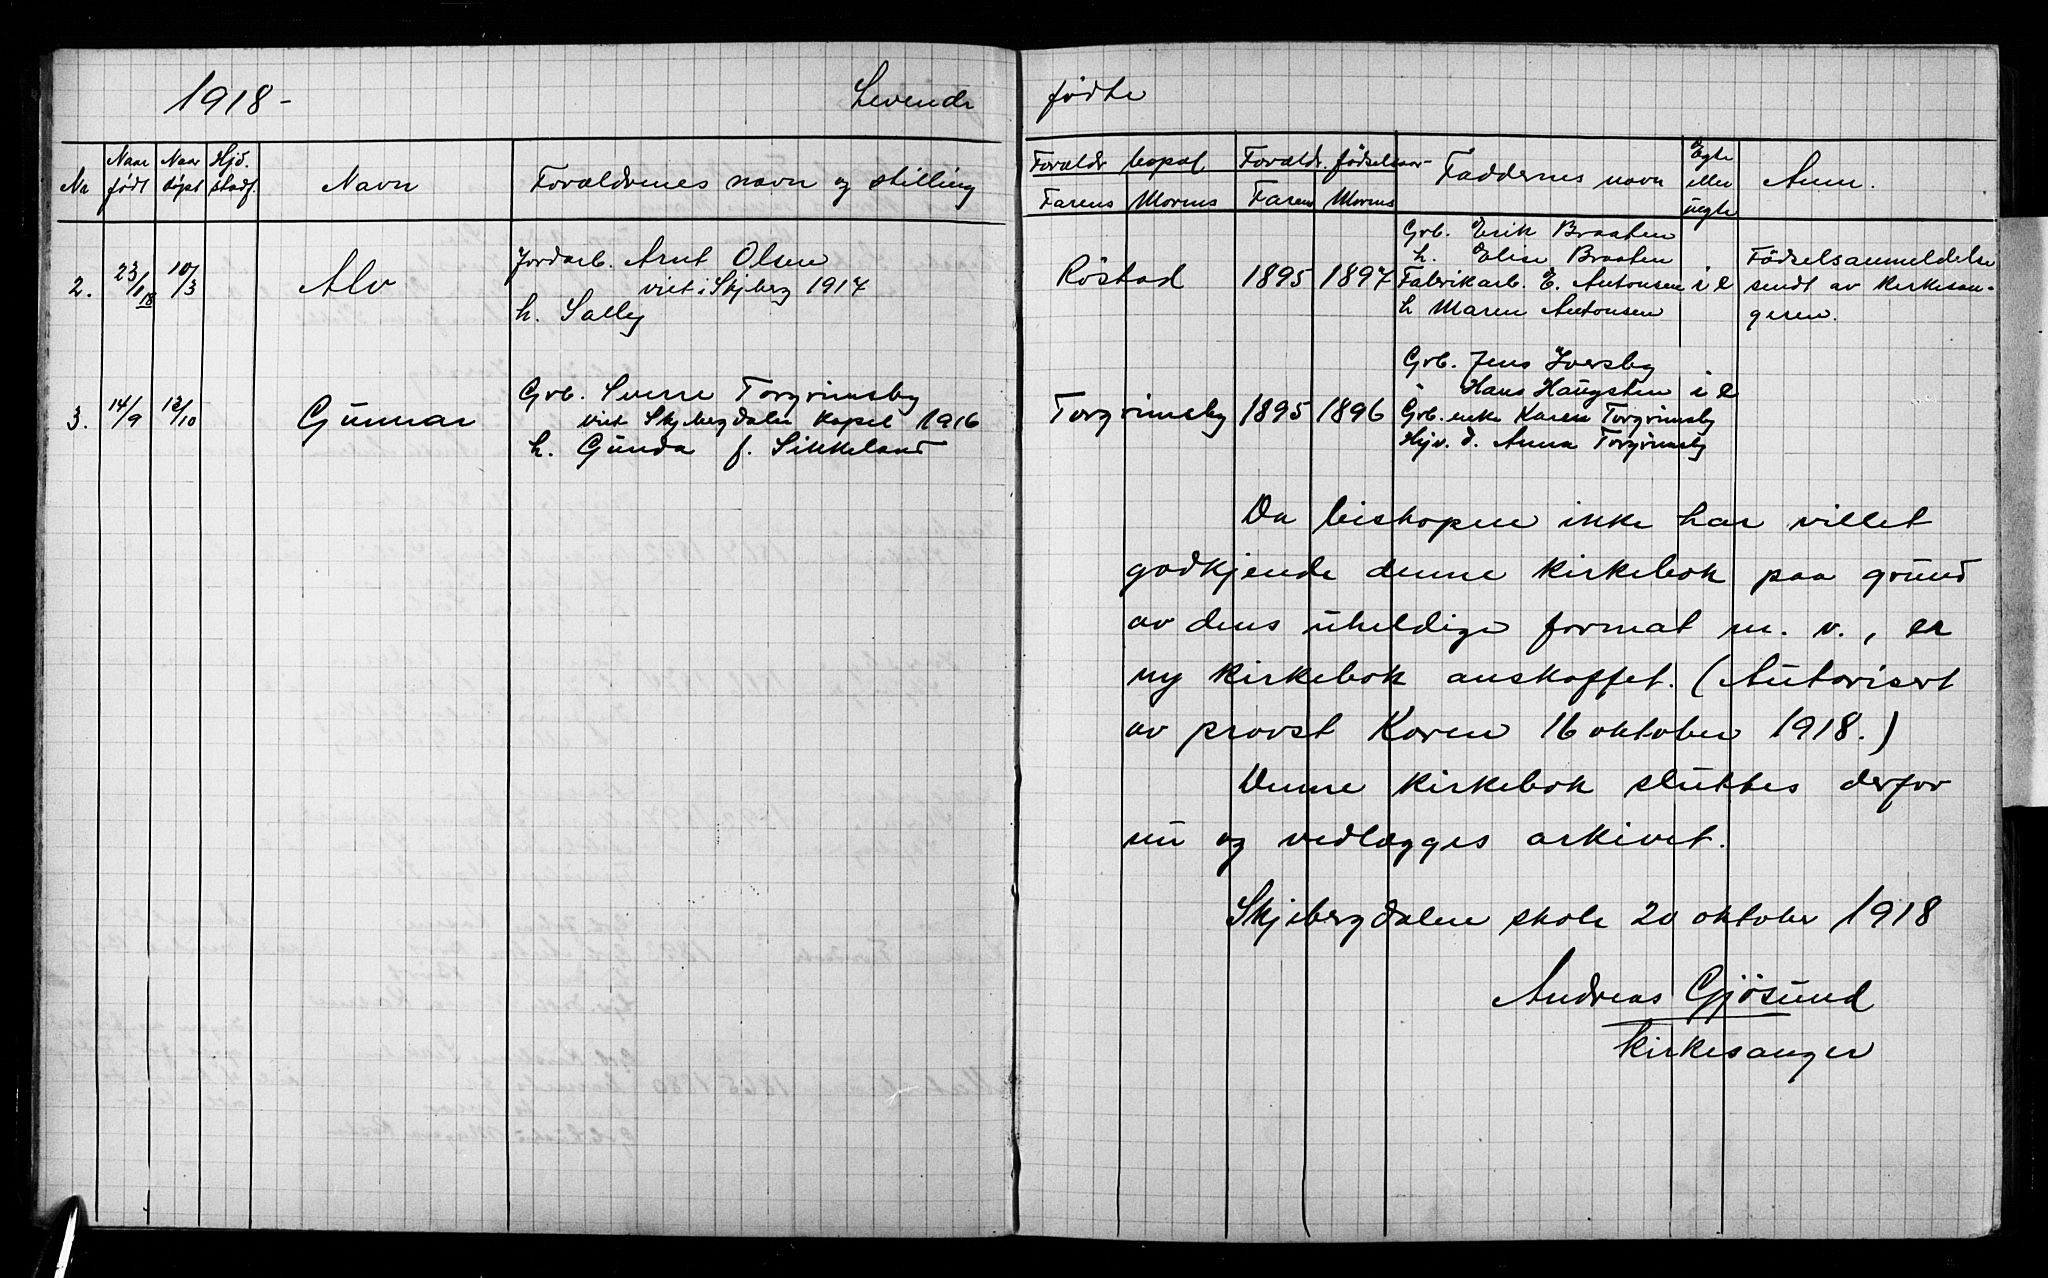 1918-
Levende
Nr
Naar født
Naar døpt
Hjd. stadf.
Navn
Forældrenes navn og stilling
2.
23/1 18
10/3
Alv
Jordarb. Arnt Olsen
viet i Skjeberg 1917
h. Sally
3.
14/9
13/10
Gunnar
Grb. Sverre Torgrimsby
viet Skjebergdalen kapel 1916
h. Gunda f. Sikkeland
fødte
Foreldr bopæl
Foreldr. fødselsaar
Faddernes navn
Egte eller uegte
Anm.
Farens
Morens
Farens
Morens
Röstad
1895
1897
Grb. Erik Braaten
h. Elise Braaten
Fabrikarb. E. Antonsen
h Maren Antonsen
i e
Fødselsanmeldelse
sendt av kirkesan-
geren.
Torgrimsby
1895
1896
Grb. Jens Iversby
" Hans Haugsten
Grb. enke Karen Torgrimsby
Hjv. d. Anna Torgrimsby
i e
Da biskopen ikke har villet
godkjende denne kirkebok paa grund
av dens uheldige format m. v., er
ny kirkebok anskaffet. (Autorisert
av provst Koren 16 oktober 1918.)
Denne kirkebok sluttes derfor
nu og vedlægges arkivet.
Skjebergdalen skole 20 oktober 1918
Andreas Gjösund
kirkesanger